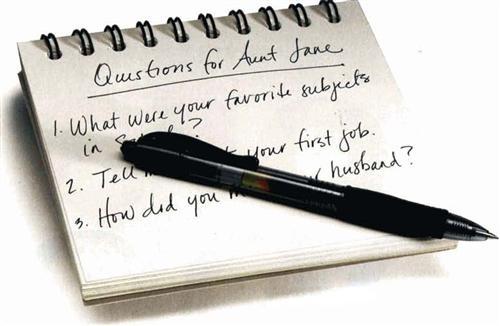 Questions for Aunt Jane
1. What were your favorite subjects
in ?
2. Tell your first job.
3. How did you husband?